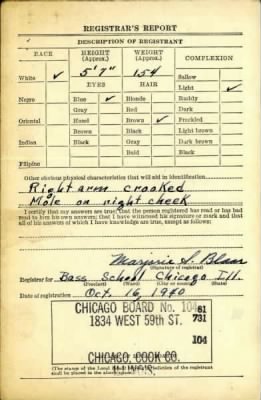 REGISTRAR'S REPORT
DESCRIPTION OF REGISTRANT
RACE HEIGHT (Approx.) WEIGHT (Approx.) COMPLEXION
White ✓ 5'7" 154 Sallow
EYES HAIR Light ✓
Negro Blue ✓ Blonde Ruddy
Gray Red Dark
Oriental Hazel Brown ✓ Freckled
Brown Black Light brown
Indian Black Gray Dark brown
Bald Black
Filipino
Other obvious physical characteristics that will aid in identification
Right arm crooked
Mole on right cheek
I certify that my answers are true; that the person registered has read or has had
read to him his own answers; that I have witnessed his signature or mark and that
all of his answers of which I have knowledge are true, except as follows:
Marjorie S.
(Signature of registrar)
Registrar for Bass School Chicago Ill.
(Precinct) (Ward) (City or county) (State)
Date of registration Oct. 16, 1940
CHICAGO BOARD No. 104 81
1834 WEST 59th ST. 731
104
CHICAGO, COOK CO.
(The stamp of the Local Board having jurisdiction of the registrant
shall be placed in the above space)